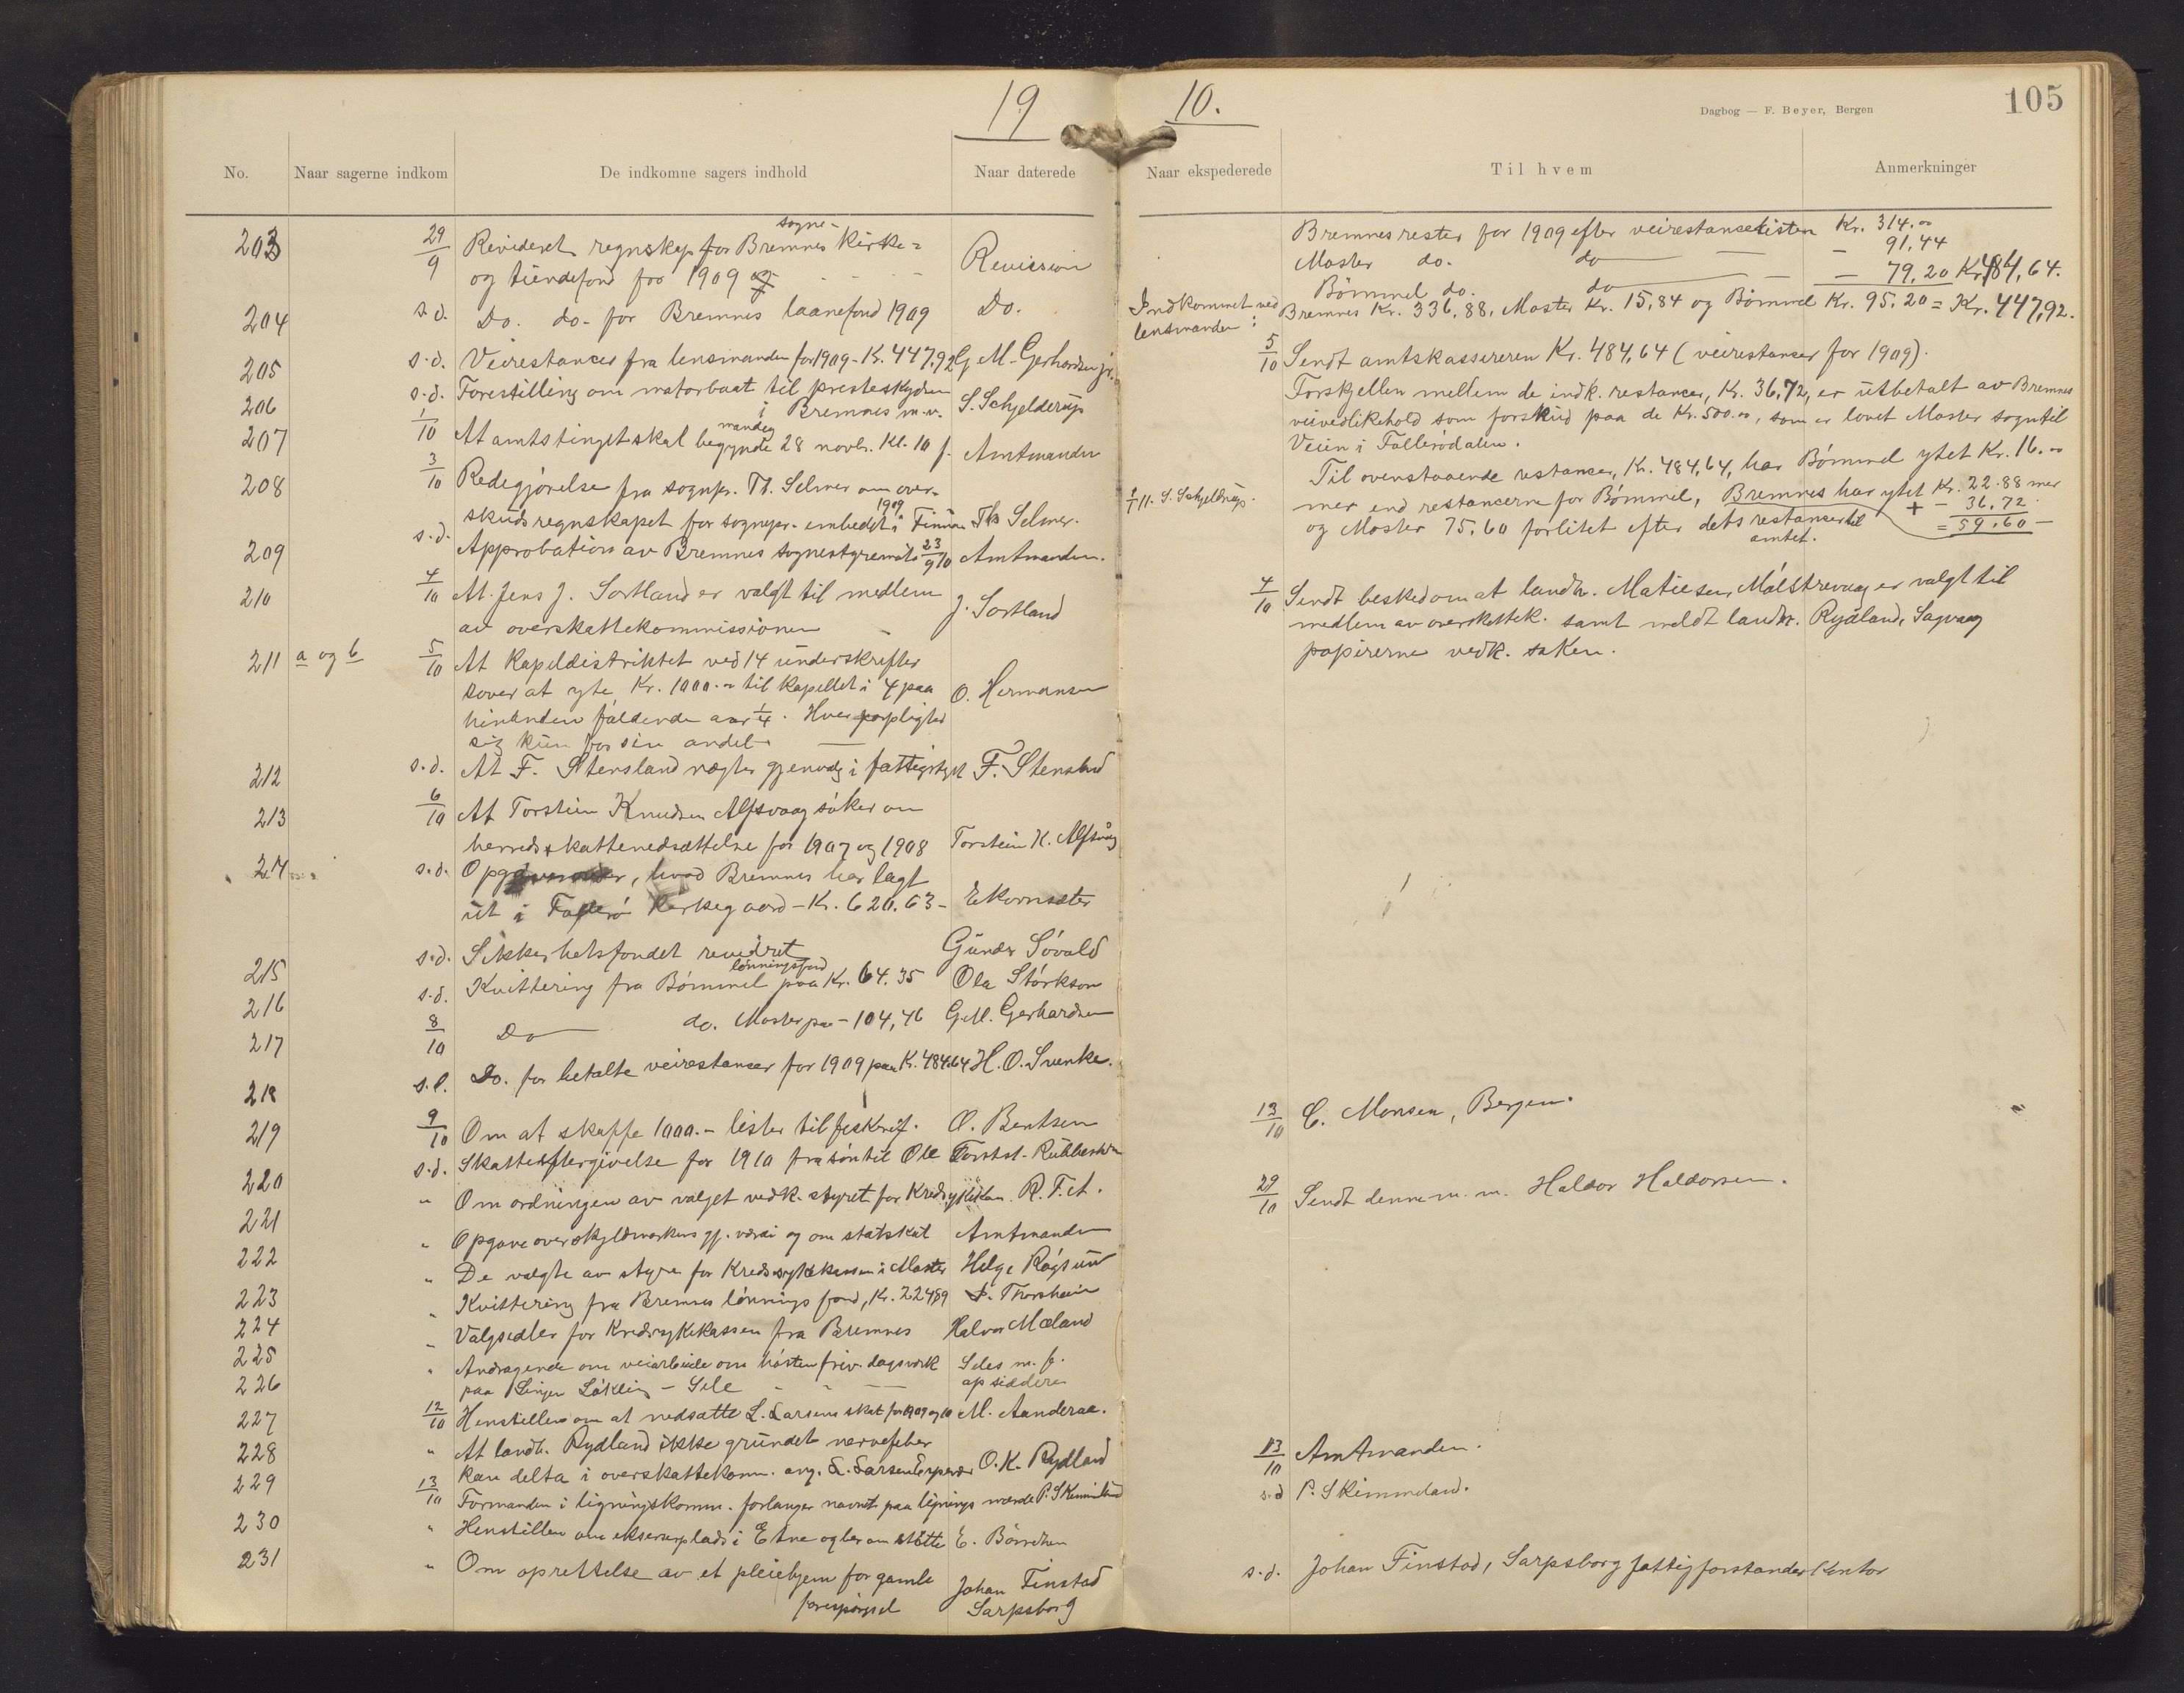 19 10.
Dagbog — F. Beyer, Bergen
105
No. Naar sagerne indkom De indkomne sagers indhold Naar daterede
203 29/9 Revideret regnskap for Bremnes sogne- kirke-
og tiendefond for 1909 Revision
204 s.d. Do. do- for Bremnes laanefond 1909 Do.
205 s.d. Veirestancer fra lensmanden for 1909 - Kr. 447,92 G. M. Gerhardsen jr.
206 s.d. Forestilling om motorbaat til presteskydsen
i Bremnes m.v. S. Schjelderup
207 1/10 At amtstinget skal begynde mandag 28 novbr. Kl. 10 f. Amtmanden
208 3/10 Redegjörelse fra sognepr. Th. Selmer om over-
skudsregnskapet for sognepr. embedet i Finnaas 1909 Th Selmer.
209 s.d. Approbation av Bremnes sognestyremöte 23/9 10 Amtmanden.
210 4/10 At Jens J. Sortland er valgt til medlem
av overskattekommissionen J. Sortland
211 a og b 5/10 At Kapeldistriktet ved 14 underskrifter
lover at yte Kr. 1000.- til Kapellet i 4 paa
hinanden fóldende aar 1/4. Hver forpligter
sig kun for sin andel O. Hermansen
212 s.d. At F. Stensland nægter gjenvalg i fattigstyret F. Stensland
213 6/10 At Torstein Knudsen Alfsvaag söker om
herredsskattenedsættelse for 1907 og 1908 Torstein K. Alfsvåg
214 s.d. Opgave over, hvad Bremnes har lagt
ut i Folderö Kirkegaard - Kr. 620.63 - Ekornsæter
215 s.d. Sikkerhetsfondet revidret Gunder Sövold
216 s.d. Kvittering fra Bömmel lönningsfond paa Kr. 64.35 Ola Störkson
217 8/10 Do do. Moster paa - 104,46 G.M. Gerhardsen
218 s.d. Do. for betalte veirestancer for 1909 paa Kr. 484.64 H. O. Svenke.
219 9/10 Om at skaffe 1000.- lister til O. Bentsen
220 s.d. Skatteeftergivelse for 1910 fra sön til Ole Torstst. Rubbestadn
" Om ordningen av valget vedk. styret for Kredssykekas. R. F. A.
221 " Opgave over skyldmarkens gj. værdi og om statskat Amtmanden
222 " De valgte av styre for Kredssykekassen i Moster Helge Rógsund
223 " Kvittering fra Bremnes lönningsfond, Kr. 224,59 Thorsheim
224 " Valgsedler for Kredssykekassen fra Bremnes Halvor Mæland
225 " Andragende om veiarbeide om hösten friv. dagsverk Seles m. fl.
226 paa Linjen Löklin - Sele opsiddere
227 12/10 Henstiller om at nedsætte L. Larsens skat for 1909 og 10 M. Aanderaa.
228 " At landh. Rydland ikke grundet nervefeber
kan delta i overskattekomm. ang. L. Larsen Espevær O. K. Rydland
229 13/10 Formanden i ligningskomm. forlanger navnet paa lignings mænde P. Skimmeland
230 " Henstiller om ekserserplads i Etne og ber om stötte E. Börretzen
231 " Om oprettelse av et pleiehjem for gamle
forespörsel Johan Finstad
Sarpsborg
Naar ekspederede Til hvem Anmerkninger
Bremnes rester for 1909 efter veirestancelisten Kr. 314.00
Moster do. do — — 91,44
Bömmel do. do — — 79,20 Kr. 484,64.
Indkommet ved
lensmanden: Bremnes Kr. 336,88, Moster Kr. 15,84 og Bömmel Kr. 95,20 = Kr. 447,92.
5/10 Sendt amtskassereren Kr. 484,64 (veirestancer for 1909).
Forskjellen mellem de indk. restancer, Kr. 36,72, er utbetalt av Bremnes
veivedlikehold som forskud paa de Kr. 500.00, som er lovet Moster sogn til
Veien i Follerödalen.
Til ovenstaaende restancer, Kr. 484,64, har Bömmel ytet Kr. 16.00
11. S. Schjelderup. mer end restancerne for Bömmel, Bremnes har ytet Kr. 22.88 mer
+ - 36.72
og Moster 75.60 forlitet efter dets restancer til = 59.60 -
amtet.
4/10 Sendt besked om at landh. Matiesen, Mölstrevaag er valgt til
medlem av overskattek. samt meldt landh. Rydland, Sagvaag
papirerne vedk. saken.
13/10 C. Monsen, Bergen.
29/10 Sendt denne m. m. Haldor Haldorsen.
13/10 Amtmanden.
s.d P. Skimmeland.
s.d. Johan Finstad, Sarpsborg fattigforstander Kontor